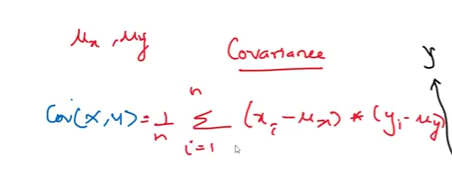 μx , μy
Covariance
y
Cov(x,y) = 1/n Σ (i=1 to n) (xᵢ - μx) * (yᵢ - μy)